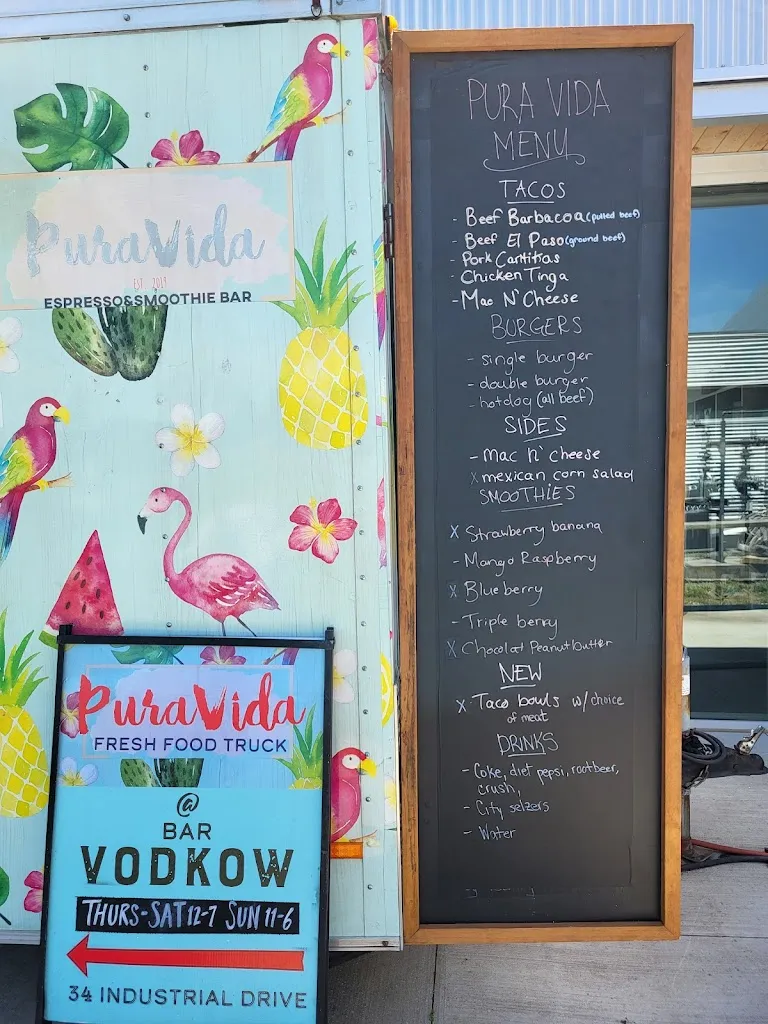 PuraVida
EST. 2019
ESPRESSO&SMOOTHIE BAR
PuraVida
FRESH FOOD TRUCK
@
BAR
VODKOW
THURS-SAT 12-7 SUN 11-6
34 INDUSTRIAL DRIVE
PURA VIDA
MENU
TACOS
- Beef Barbacoa (pulled beef)
- Beef El Paso (ground beef)
- Pork Carnitas
- Chicken Tinga
- Mac N' Cheese
BURGERS
- single burger
- double burger
- hotdog (all beef)
SIDES
- Mac N' Cheese
x mexican corn salad
SMOOTHIES
x Strawberry banana
- Mango Raspberry
x Blueberry
- Triple berry
x Chocolat Peanutbutter
NEW
x Taco bowls w/ choice
of meat
DRINKS
- Coke, diet pepsi, rootbeer,
crush,
- City selzers
- Water